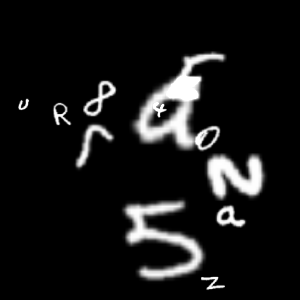 U R 8 a
0
N
a
5
z